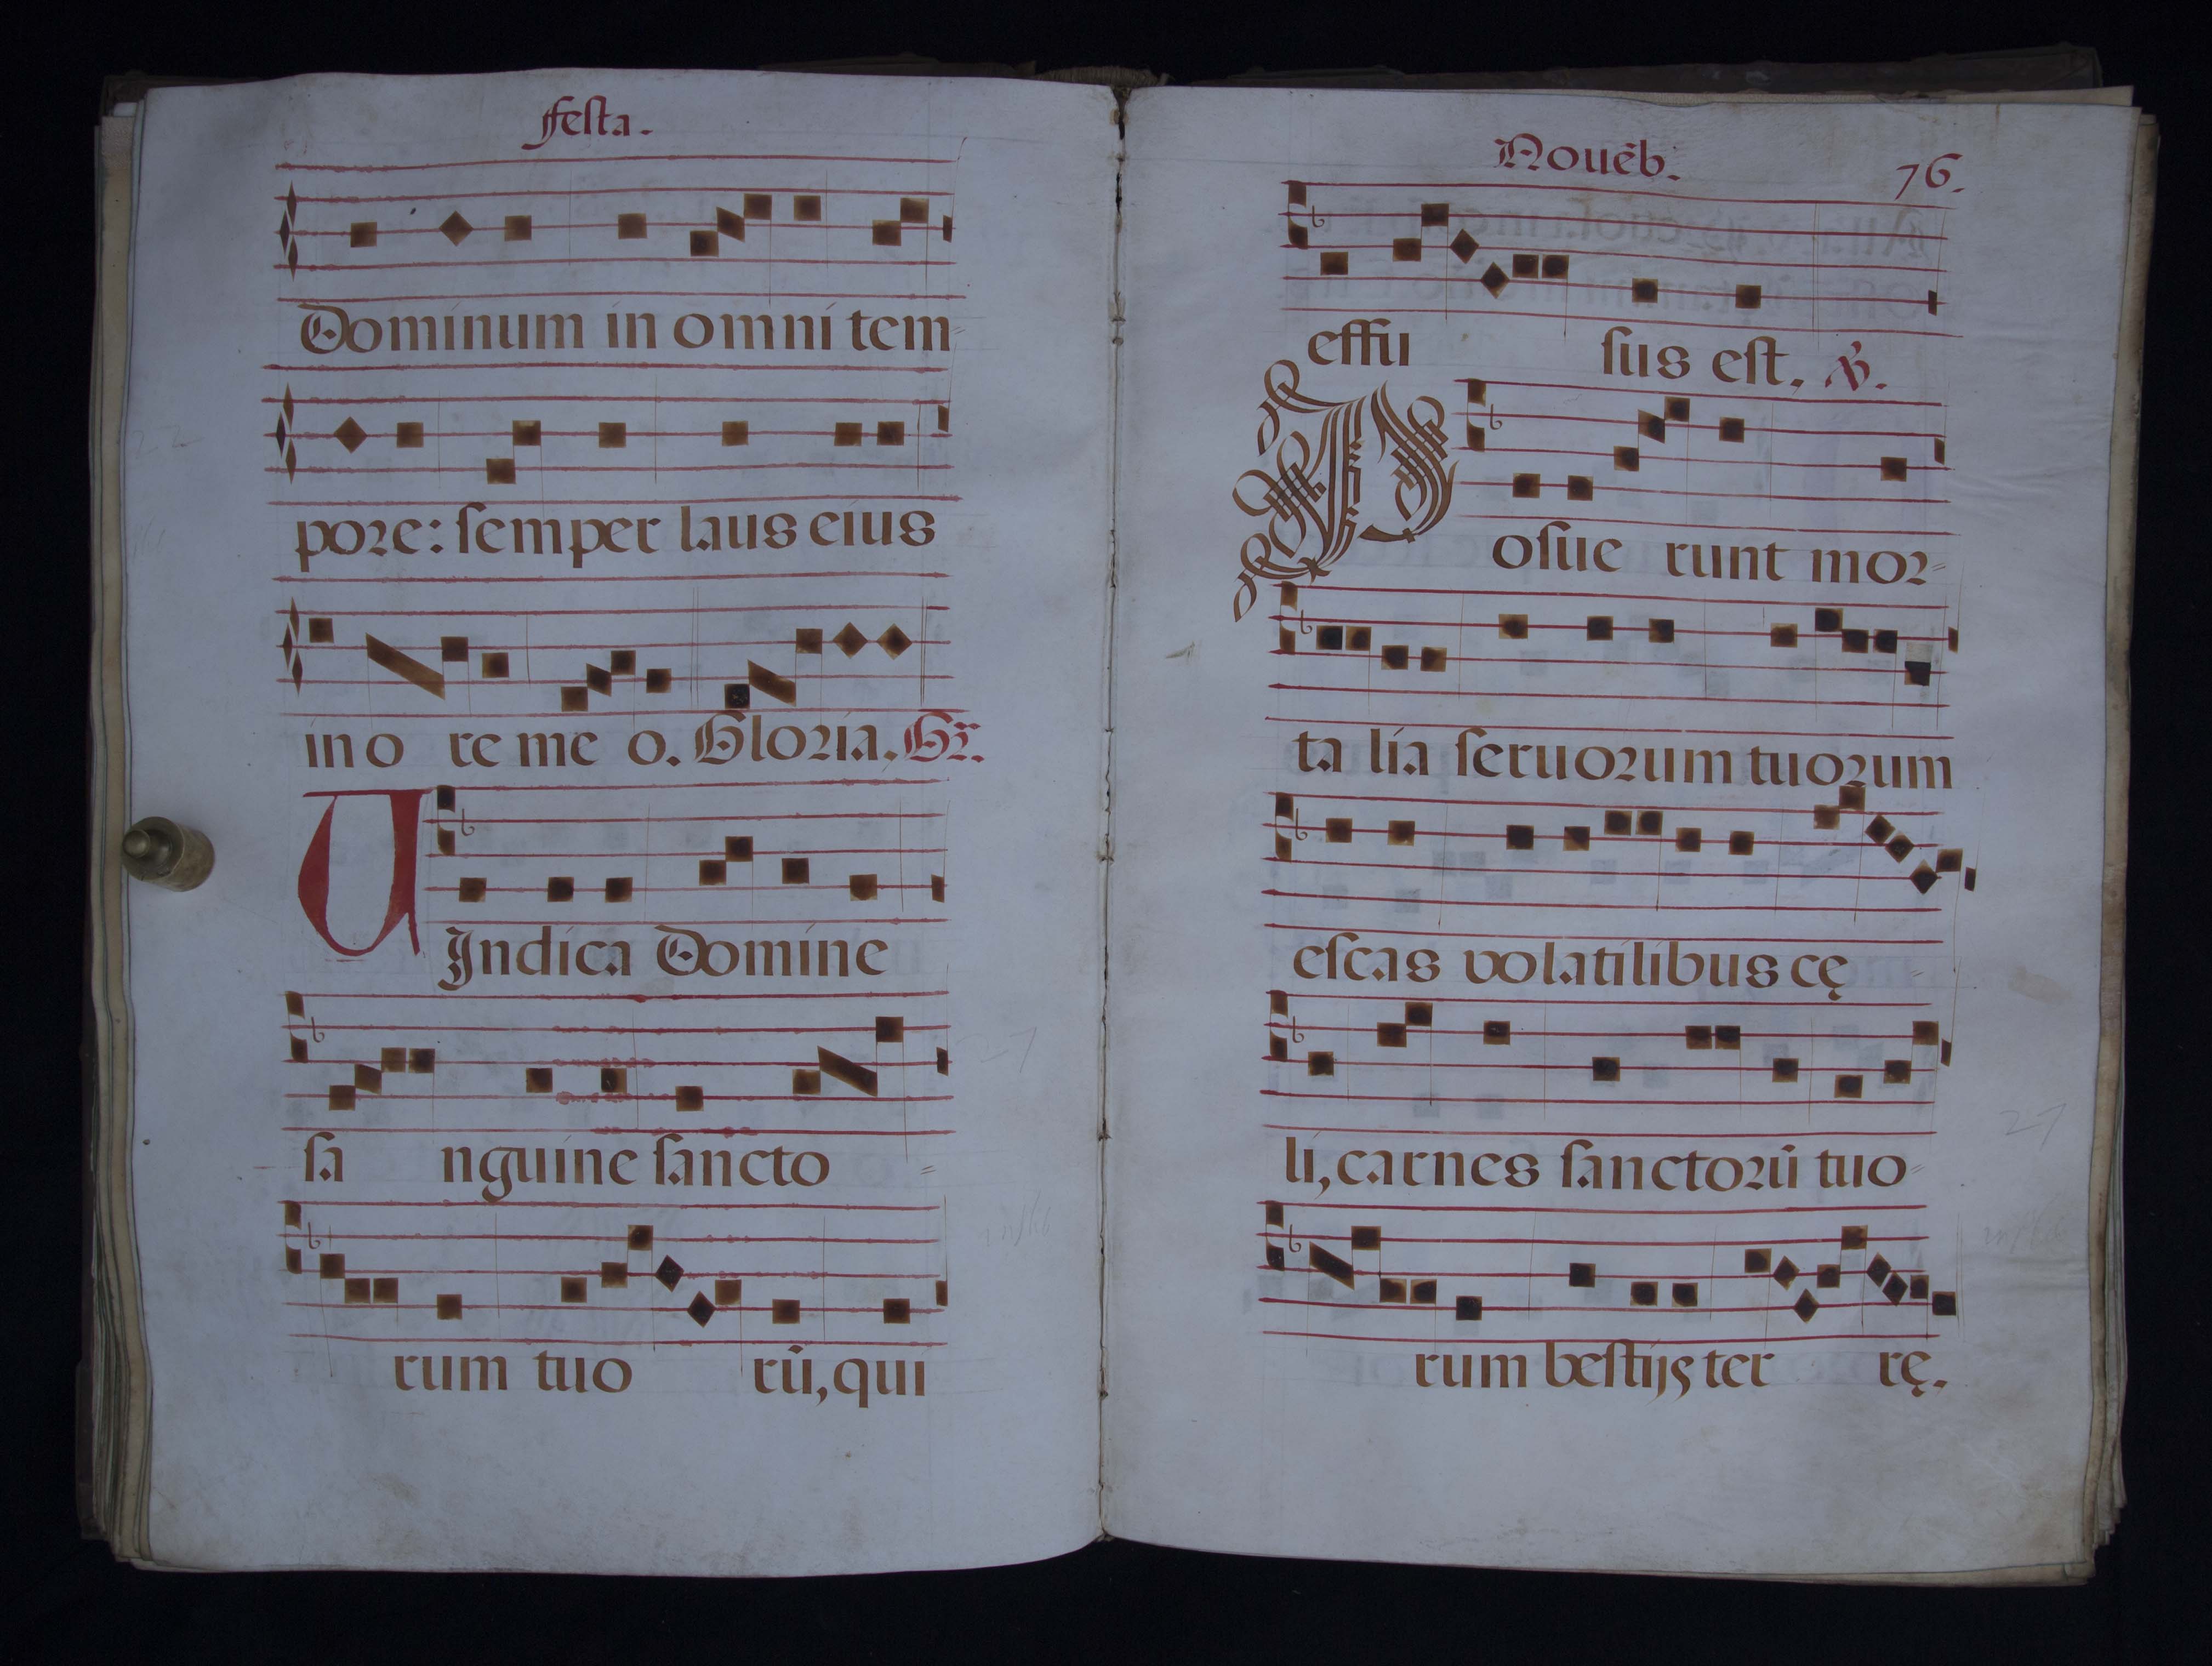 ffesta.
Dominum in omni tem⸗
pore: ſemper laus eius
in o re me o. Gloria, Gr̃.
UIndica Domine
ſa nguine ſancto ⸗
rum tuo rū, qui
Nouēb. 76.
effu ſus eſt, ℣.
Poſue runt mor⸗
ta lia ſeruorum tuorum
eſcas volatilibus cę ⸗
li, carnes ſanctorū tuo⸗
rum beſtijs ter rę.